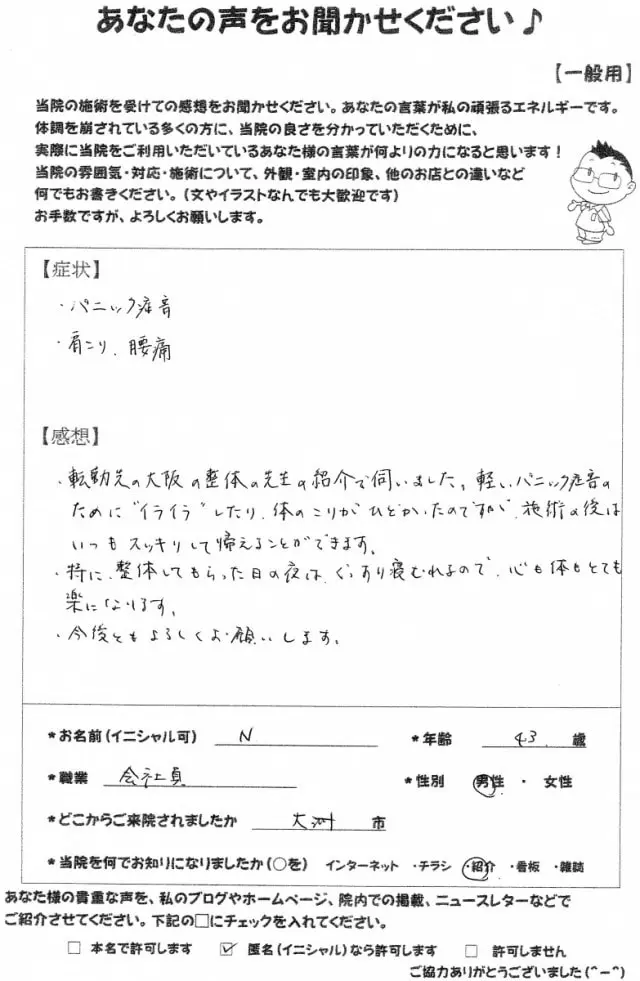 あなたの声をお聞かせください♪
【一般用】
当院の施術を受けての感想をお聞かせください。あなたの言葉が私の頑張るエネルギーです。
体調を崩されている多くの方に、当院の良さを分かっていただくために、
実際に当院をご利用いただいているあなた様の言葉が何よりの力になると思います！
当院の雰囲気・対応・施術について、外観・室内の印象、他のお店との違いなど
何でもお書きください。(文やイラストなんでも大歓迎です)
お手数ですが、よろしくお願いします。
【症状】
・パニック症音
・肩こり、腰痛
【感想】
・転勤先の大阪の整体の先生の紹介で伺いました。軽いパニック症音の
ために"イライラ"したり、体のこりがひどかったのですが、施術の後は
いつもスッキリして帰えることができます。
・特に、整体してもらった日の夜は、ぐっすり寝むれるので、心も体もとても
楽になります。
・今後ともよろしくお願いします。
*お名前(イニシャル可) N *年齢 43 歳
*職業 会社員 *性別 男性 ・ 女性
*どこからご来院されましたか 大洲 市
*当院を何でお知りになりましたか(○を) インターネット ・チラシ ・紹介 ・看板 ・雑誌
あなた様の貴重な声を、私のブログやホームページ、院内での掲載、ニュースレターなどで
ご紹介させてください。下記の□にチェックを入れてください。
□ 本名で許可します ☑ 匿名(イニシャル)なら許可します □ 許可しません
ご協力ありがとうございました(^ー^)